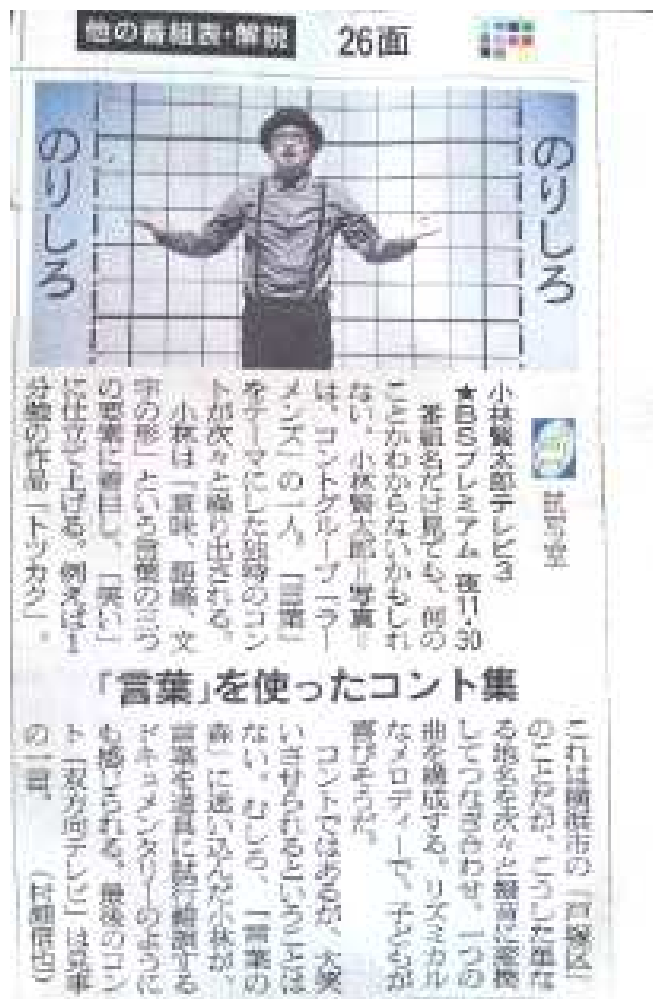 他の番組表・解説
26面
のりしろ
のりしろ
試写室
小林賢太郎テレビ3
★BSプレミアム 夜11・30
番組名だけ見ても、何の
ことかわからないかもしれ
ない。小林賢太郎＝写真＝
は、コントグループ「ラー
メンズ」の一人。「言葉」
をテーマにした独特のコン
トが次々と繰り出される。
小林は「意味、語感、文
字の形」という言葉の三つ
の要素に着目して、「笑い」
に仕立て上げる。例えば1
分弱の作品「トツカク」。
「言葉」を使ったコント集
これは横浜市の「戸塚区」
のことだが、こうした単な
る地名を次々と擬音に変換
してつなぎ合わせ、一つの
曲を構成する。リズミカル
なメロディーで、子どもが
喜びそうだ。
コントではあるが、大笑
いさせられるということは
ない。むしろ、「言葉の
森」に迷い込んだ小林が、
言葉を道具に試行錯誤する
ドキュメンタリーのように
も感じられる。最後のコン
ト「双方向テレビ」は見事
の一言。